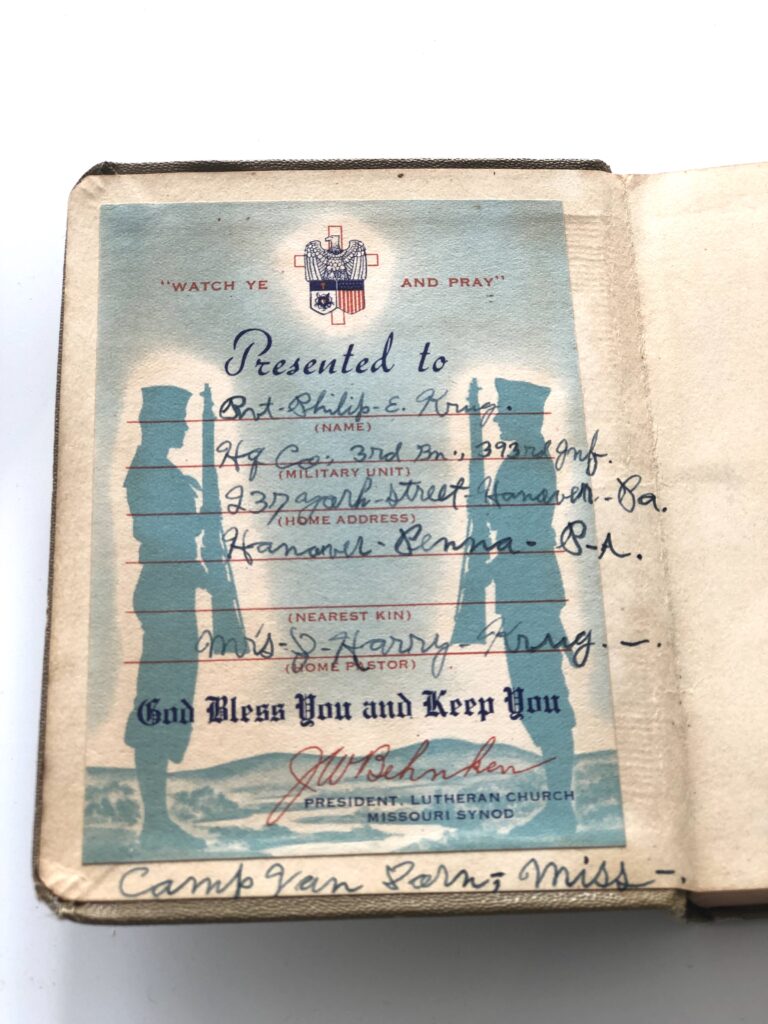 "WATCH YE AND PRAY"
Presented to
Pvt-Philip-E. Krug.
(NAME)
Hq Co; 3rd Bn., 393rd Inf.
(MILITARY UNIT)
237 York-street-Hanover-Pa.
(HOME ADDRESS)
Hanover-Penna-P-A.
(NEAREST KIN)
Mrs-J-Harry-Krug.-.
(HOME PASTOR)
God Bless You and Keep You
JWBehnken
PRESIDENT, LUTHERAN CHURCH
MISSOURI SYNOD
Camp Van Dorn, Miss-.